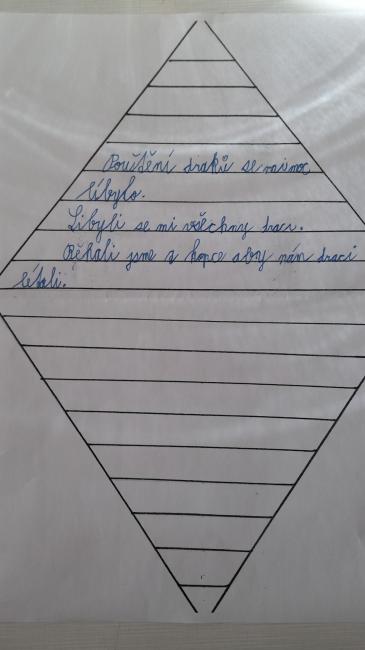 Pouštění draků se nám moc
líbylo.
Libyli se mi všechny draci.
Běhali jsme z kopce aby nám draci
létali.